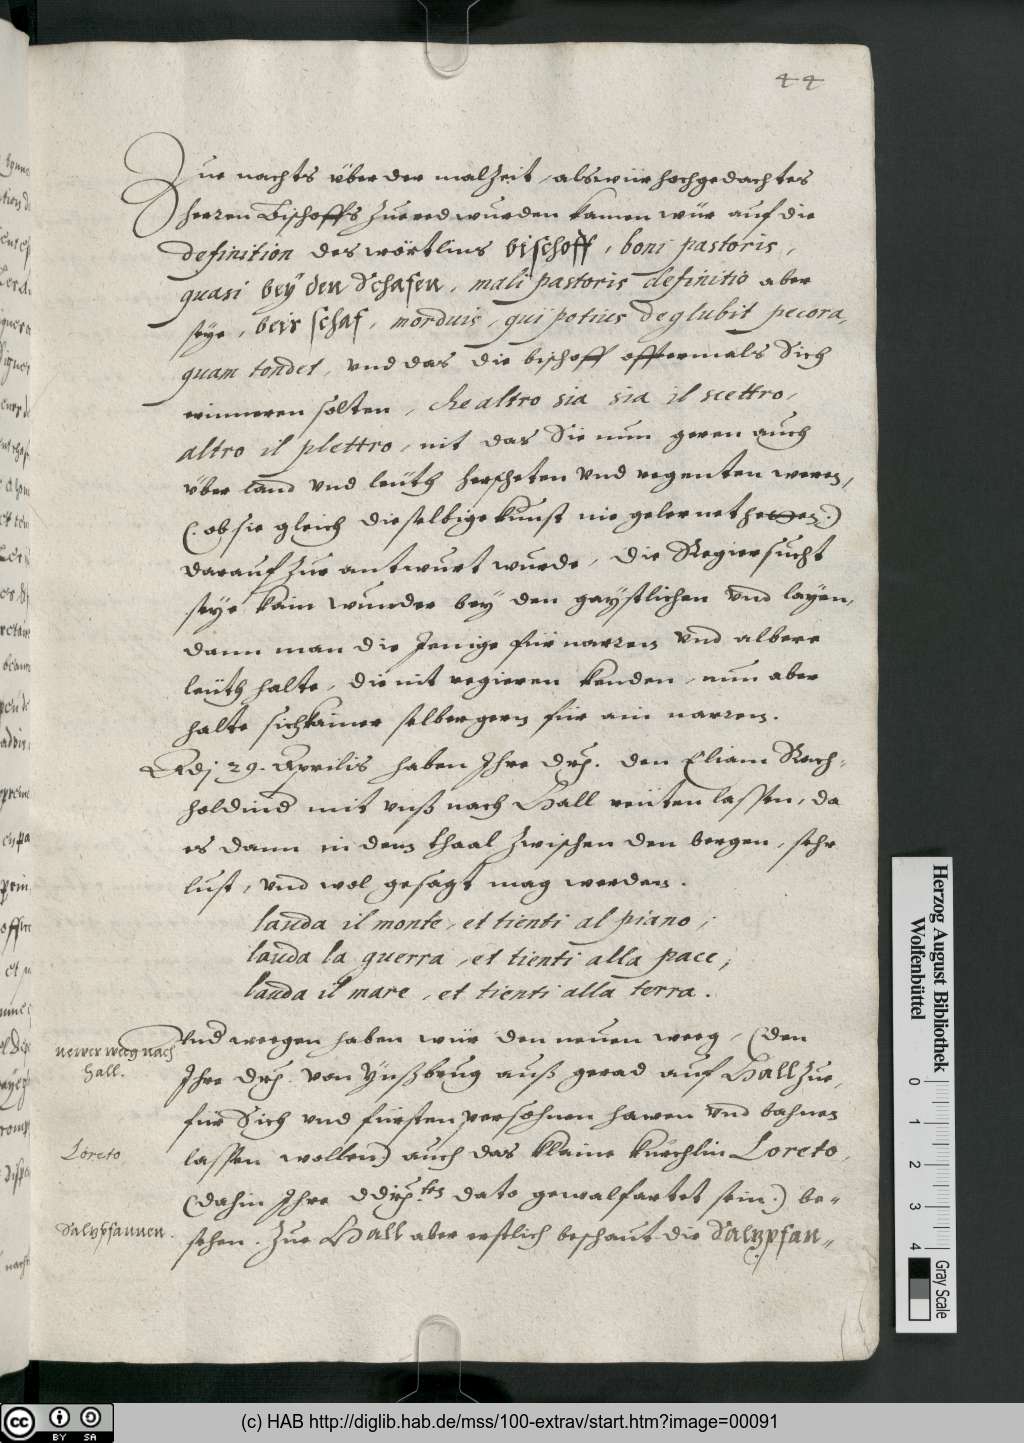 44
Zue nachts über der malzeit, als wür hochgedachtes
herren Bischoffs zue red wurden kamen wür auf die
definition des wörtlins bischoff, boni pastoris,
quasi bey den Schafen, mali pastoris definitio aber
seye, beis schaf, morduis, qui potius deglubit pecora,
quam tondet, und das die bischoff offtermals Sich
erinneren solten, che altro sia sia il scettro,
altro il plettro, nit das Sie nun geren auch
über land und leüth herscheten und regenten weren,
(: ob sie gleich dieselbige kunst nie gelernet hetten :)
darauf zue antwurt wurde, die Regiersucht
seye kain wunder bey den gaystlichen und layen,
dann man die Jenige für narren und albere
leüth halte, die nit regieren kenden, nun aber
halte sich kainer selber gern für ain narren.
Adj 29. Aprilis haben Ihre drh. den Eliam Reich-
holdind mit unß nach Hall reüten lassen, da
es dann in dem thaal zwischen den bergen, sehr
lust, und wol gesagt mag werden.
lauda il monte, et tienti al piano;
lauda la guerra, et tienti alla pace;
lauda il mare, et tienti alla terra.
Und wegen haben wür den neuen weeg, (den
newer weeg nach
Hall.
Ihre drh. von Ynßbrug auß gerad auf Hall zue,
für Sich und fürsten persohnen hawen und bahnen
lassen wollen) auch das klaine kürchlin Loreto,
Loreto
(dahin Ihre ddrh.ten dato gewalfartet sein:) be-
sehen. Zue Hall aber erstlich beschaut die Saltzpfan-
Saltzpfannen.
Herzog August Bibliothek
Wolfenbüttel
0 1 2 3 4
Gray Scale
cc BY SA
(c) HAB http://diglib.hab.de/mss/100-extrav/start.htm?image=00091